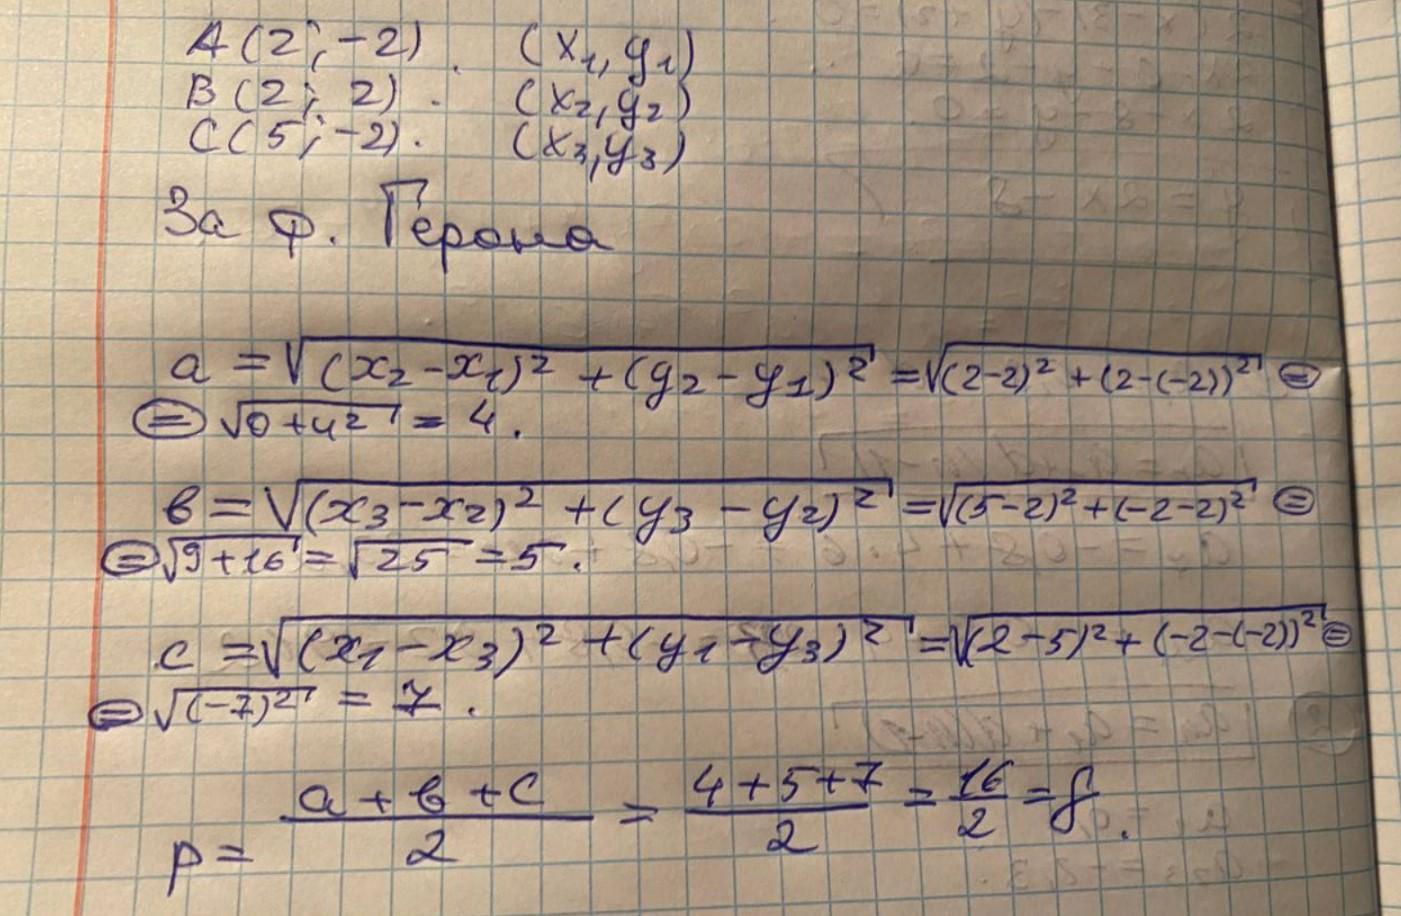 A(2; -2). (x₁, y₁)
B(2; 2). (x₂, y₂)
C(5; -2). (x₃, y₃)
За ф. Герона
a = √((x₂-x₁)² + (y₂-y₁)²) = √((2-2)² + (2-(-2))²) =
= √(0+4²) = 4.
в = √((x₃-x₂)² + (y₃-y₂)²) = √((5-2)² + (-2-2)²) =
= √(9+16) = √25 = 5.
c = √((x₁-x₃)² + (y₁-y₃)²) = √((2-5)² + (-2-(-2))²) =
= √((-7)²) = 7.
p = (a+в+c)/2 = (4+5+7)/2 = 16/2 = 8.